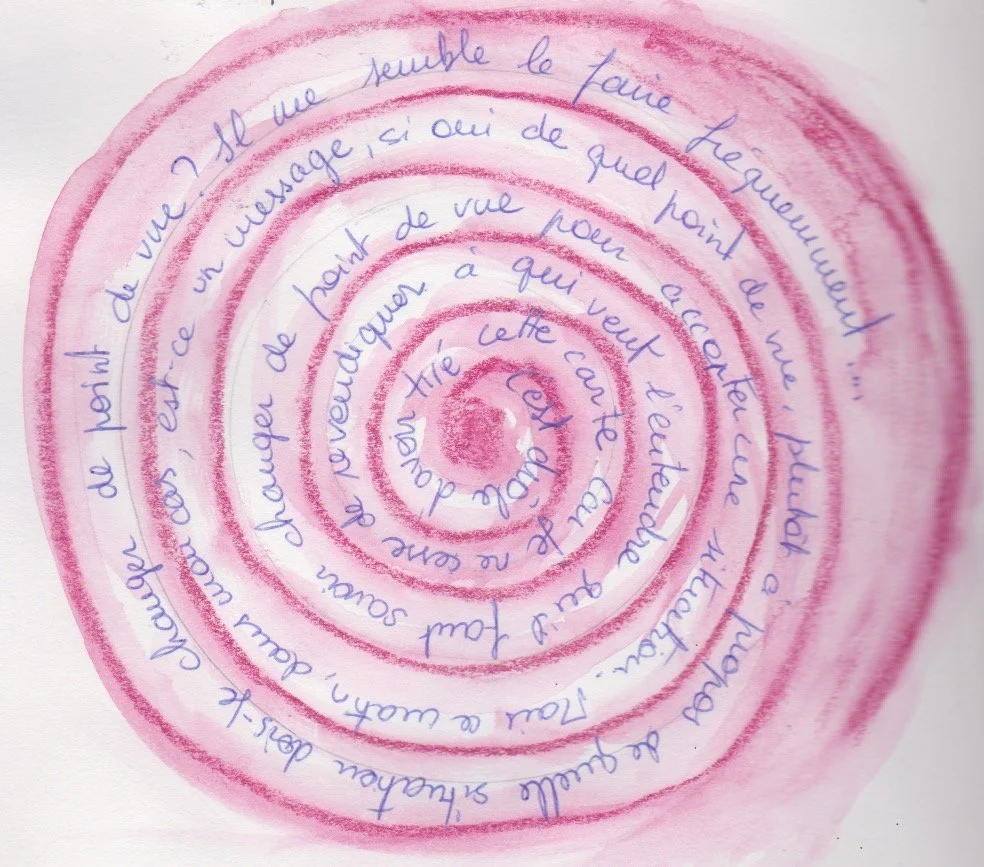 C'est drôle d'avoir tiré cette carte car je ne cesse de revendiquer à qui veut l'entendre qu'il faut savoir changer de point de vue pour accepter une situation. Mais ce matin, dans mon cas, est-ce un message, si oui de quel point de vue, plutôt à propos de quelle situation dois-je changer de point de vue? Il me semble le faire fréquemment...